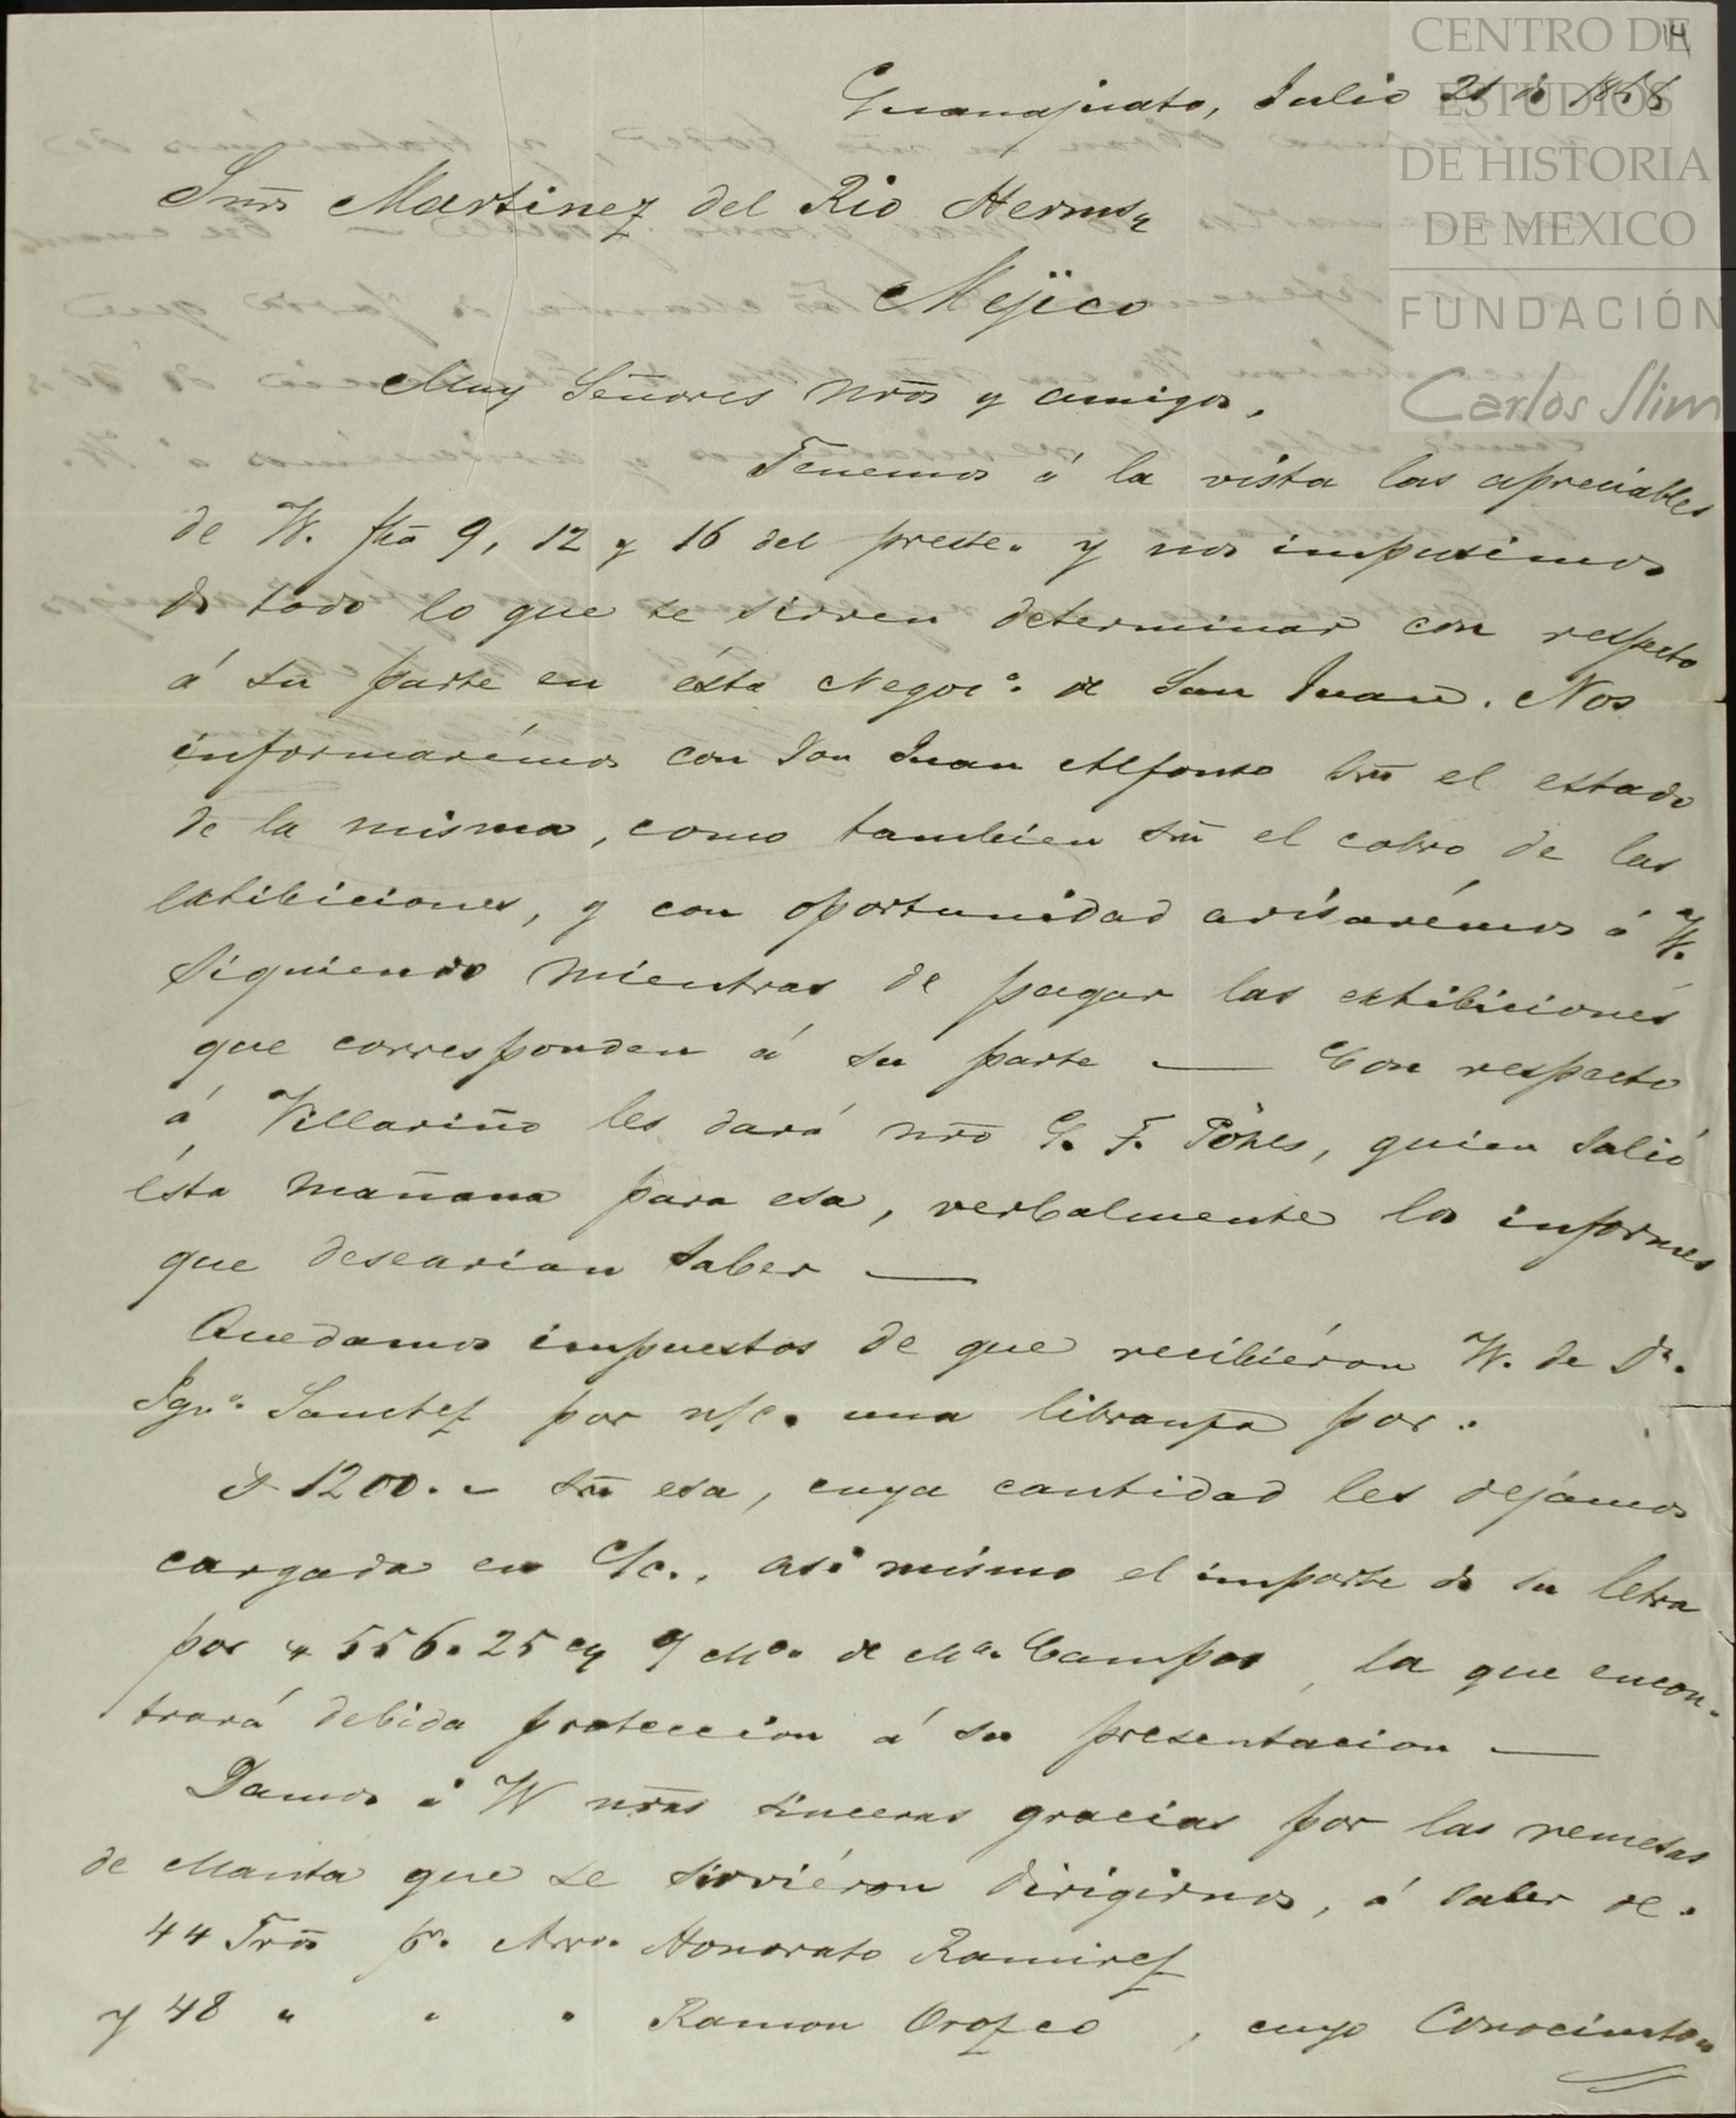 14
CENTRO DE
ESTUDIOS
DE HISTORIA
DE MEXICO
FUNDACIÓN
Carlos Slim
Guanajuato, Julio 21 de 1868
Snrs Martinez del Rio Hermos
Mejico
Muy Señores nros y amigos,
Tenemos á la vista las apreciables
de W. fha 9, 12 y 16 del preste. y nos impusimos
de todo lo que se sirven determinar con respecto
á su parte en ésta Negocn. de San Juan. Nos
informarémos con Don Juan Alfonso sre el estado
de la misma, como tambien sre el cobro de las
exhibiciones, y con oportunidad avisarémos á W.
siguiendo mientras de pagar las exhibiciones
que corresponden á su parte — Con respecto
á Villariño les dará nro G. F. Pöhls, quien salió
ésta mañana para esa, verbalmente los informes
que desearian saber —
Quedamos impuestos de que recibiéron W. de Dn.
Ygno. Sanchez por n/c. una libranza por.
$ 1200.- sre esa, cuya cantidad les dejámos
cargada en C/c., asi mismo el importe de su letra
por $ 556.25 c/ Mo. de Ma. Campos, la que encon-
trará debida proteccion á su presentacion —
Damos á W nras sinceras gracias por las remesas
de Manta que se sirviéron dirigirnos, á saber de.
44 Tros pr. Arro. Honorato Ramirez
y 48 " " " Ramon Orozco, cuyo Conocimto